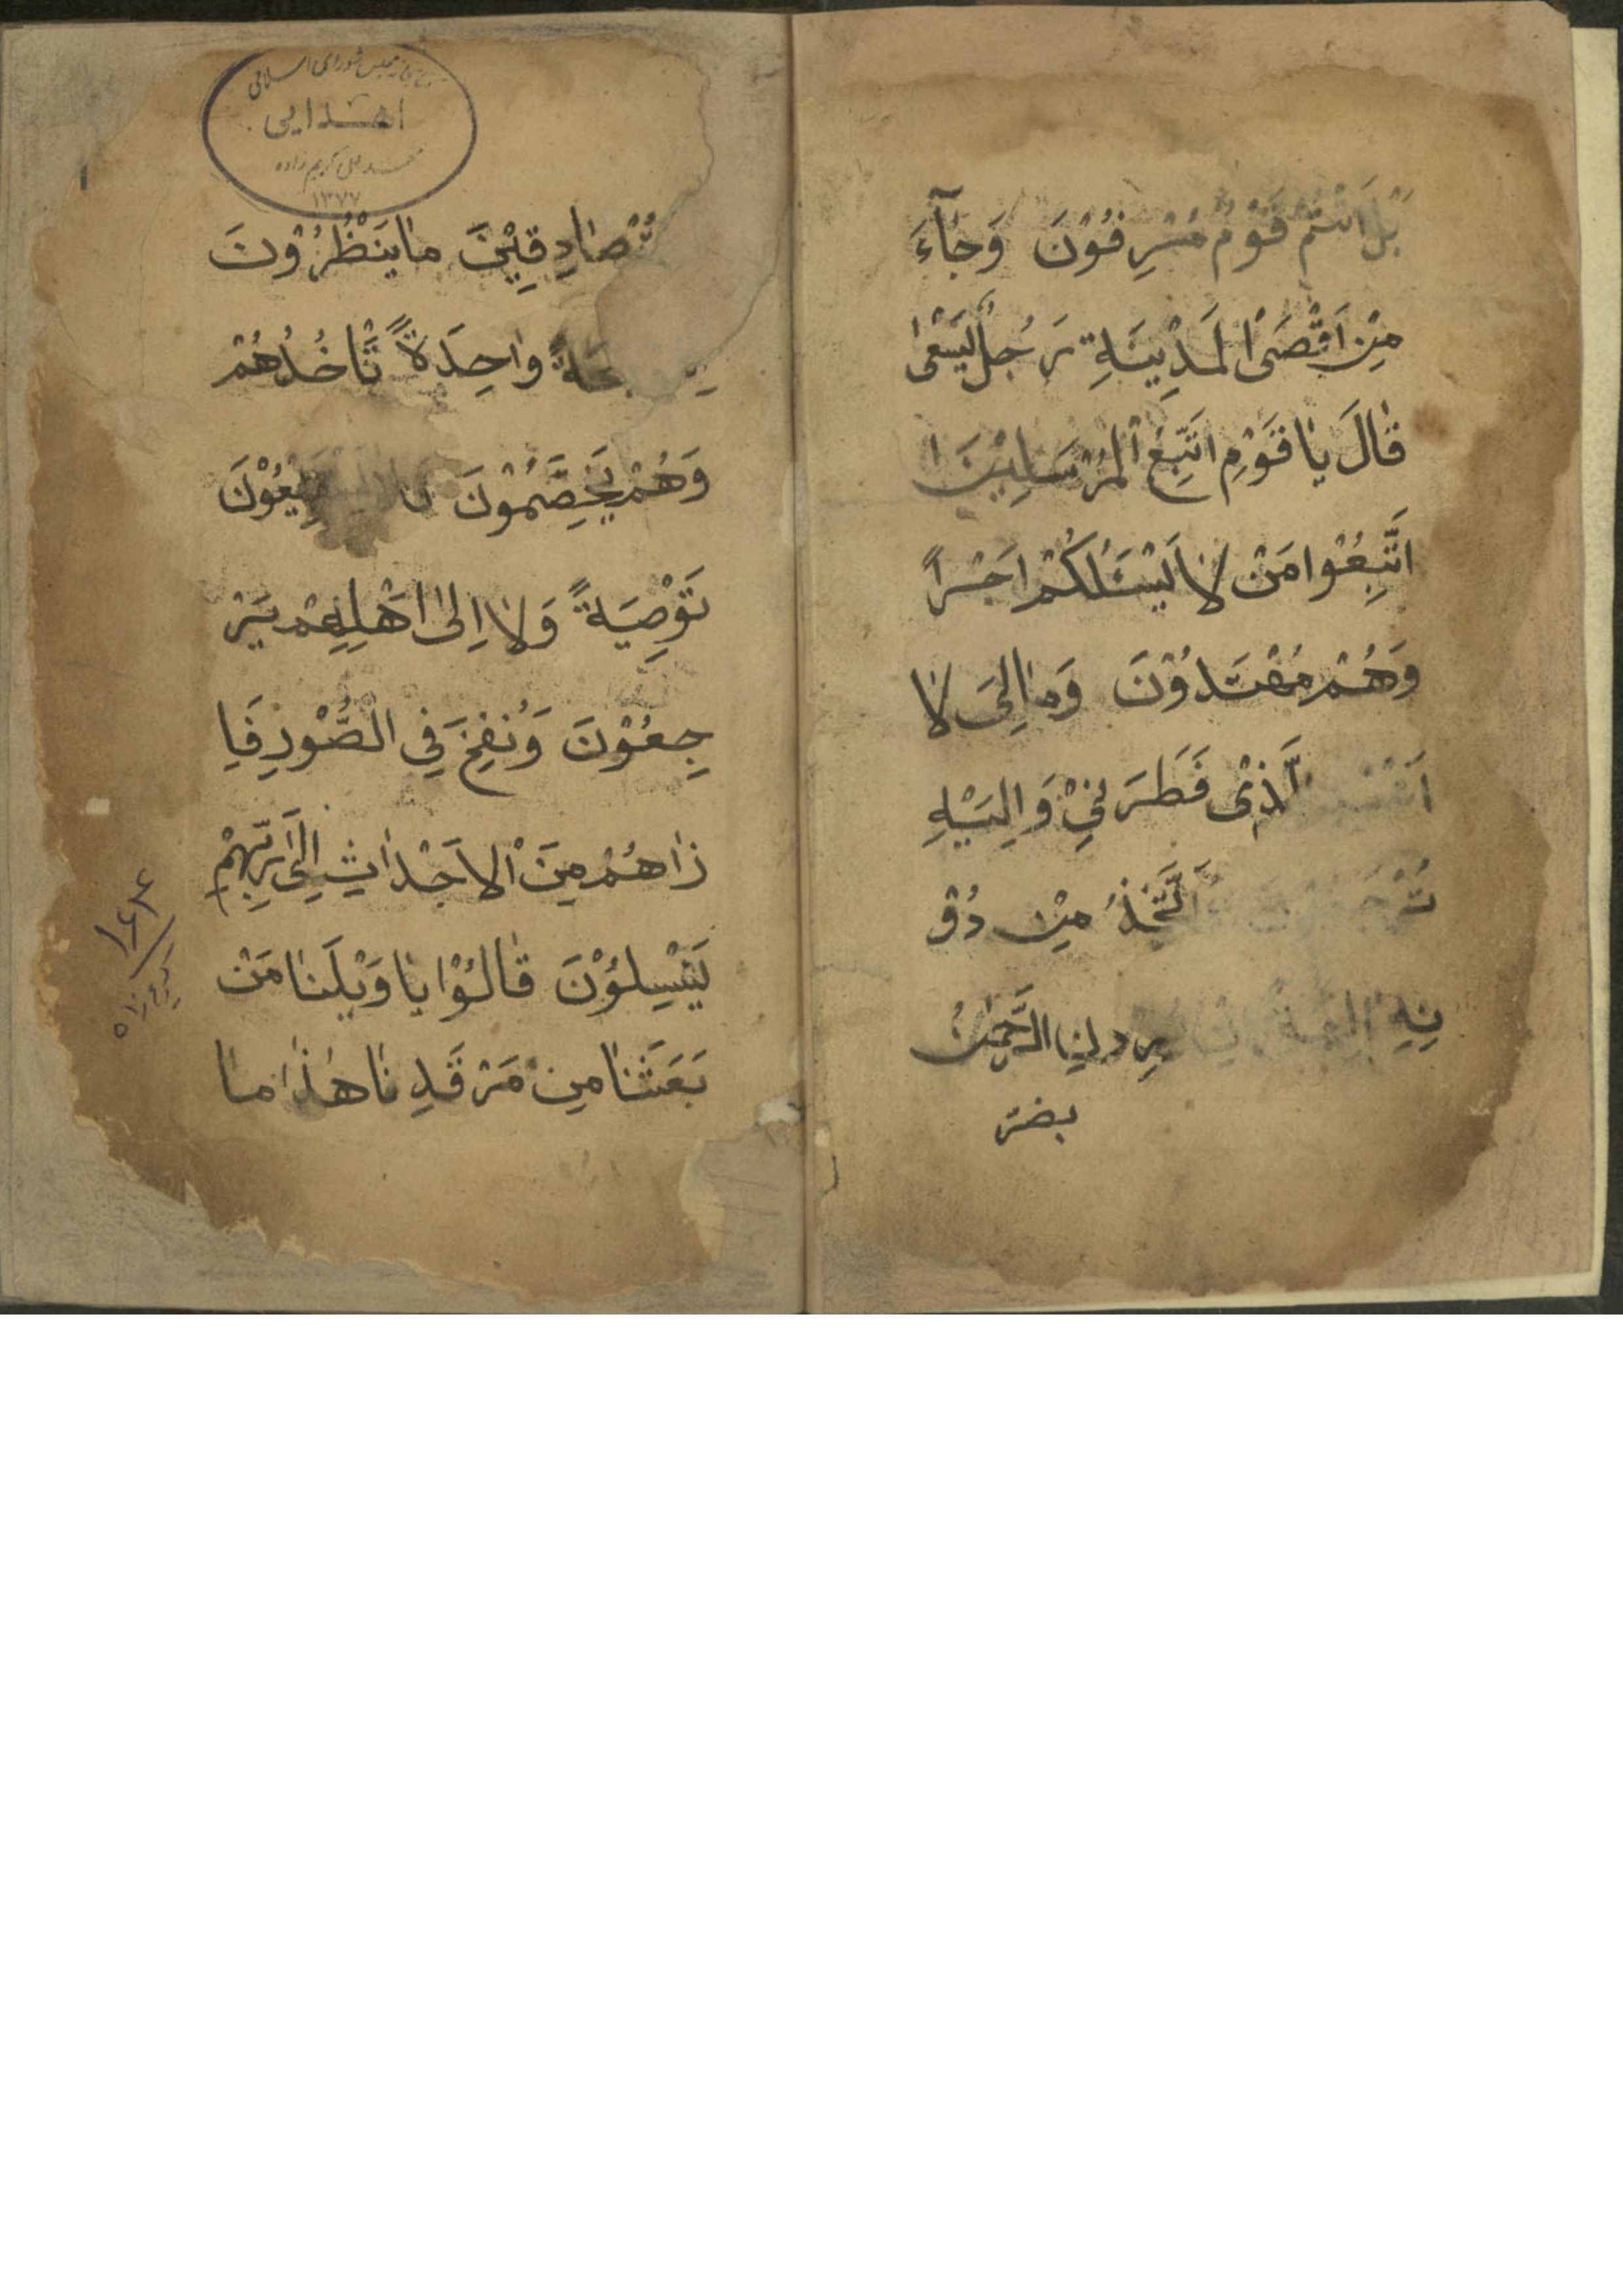 بَلْ اَنْتُمْ قَوْمٌ مُسْرِفُوْنَ وَجٰآءَ
مِنْ اَقْصَى الْمَدِيْنَةِ رَجُلٌ يَسْعٰى
قٰالَ يٰا قَوْمِ اتَّبِعُ الْمُرْسَلِيْنَ ا
اتَّبِعُوْا مَنْ لٰا يَسْئَلُكُمْ اَجْراً
وَهُمْ مُهْتَدُوْنَ وَمٰا لِىَ لٰا
لَّذِىْ فَطَرَنِيْ وَاِلَيْهِ
تُرْجَعُوْنَ اَتَّخِذُ مِنْ دُوْ
نِهِ يُرِدْنِ الرَّحْمٰنُ
بضر
اهدایی
۱۳۷۷
صٰادِقِيْنَ مٰا يَنْظُرُوْنَ
وٰاحِدَةً تَّاْخُذُهُمْ
وَهُمْ يَخِصَّمُوْنَ
تَوْصِيَةً وَلٰا اِلىٰ اَهْلِهِمْ يَرْ
جِعُوْنَ وَنُفِخَ فِي الصُّوْرِ فَاِ
ذٰا هُمْ مِنَ الْاَجْدٰاثِ اِلىٰ رَبِّهِمْ
يَنْسِلُوْنَ قٰالُوْا يٰا وَيْلَنٰا مَنْ
بَعَثَنٰا مِنْ مَرْقَدِنٰا هٰذٰا مٰا